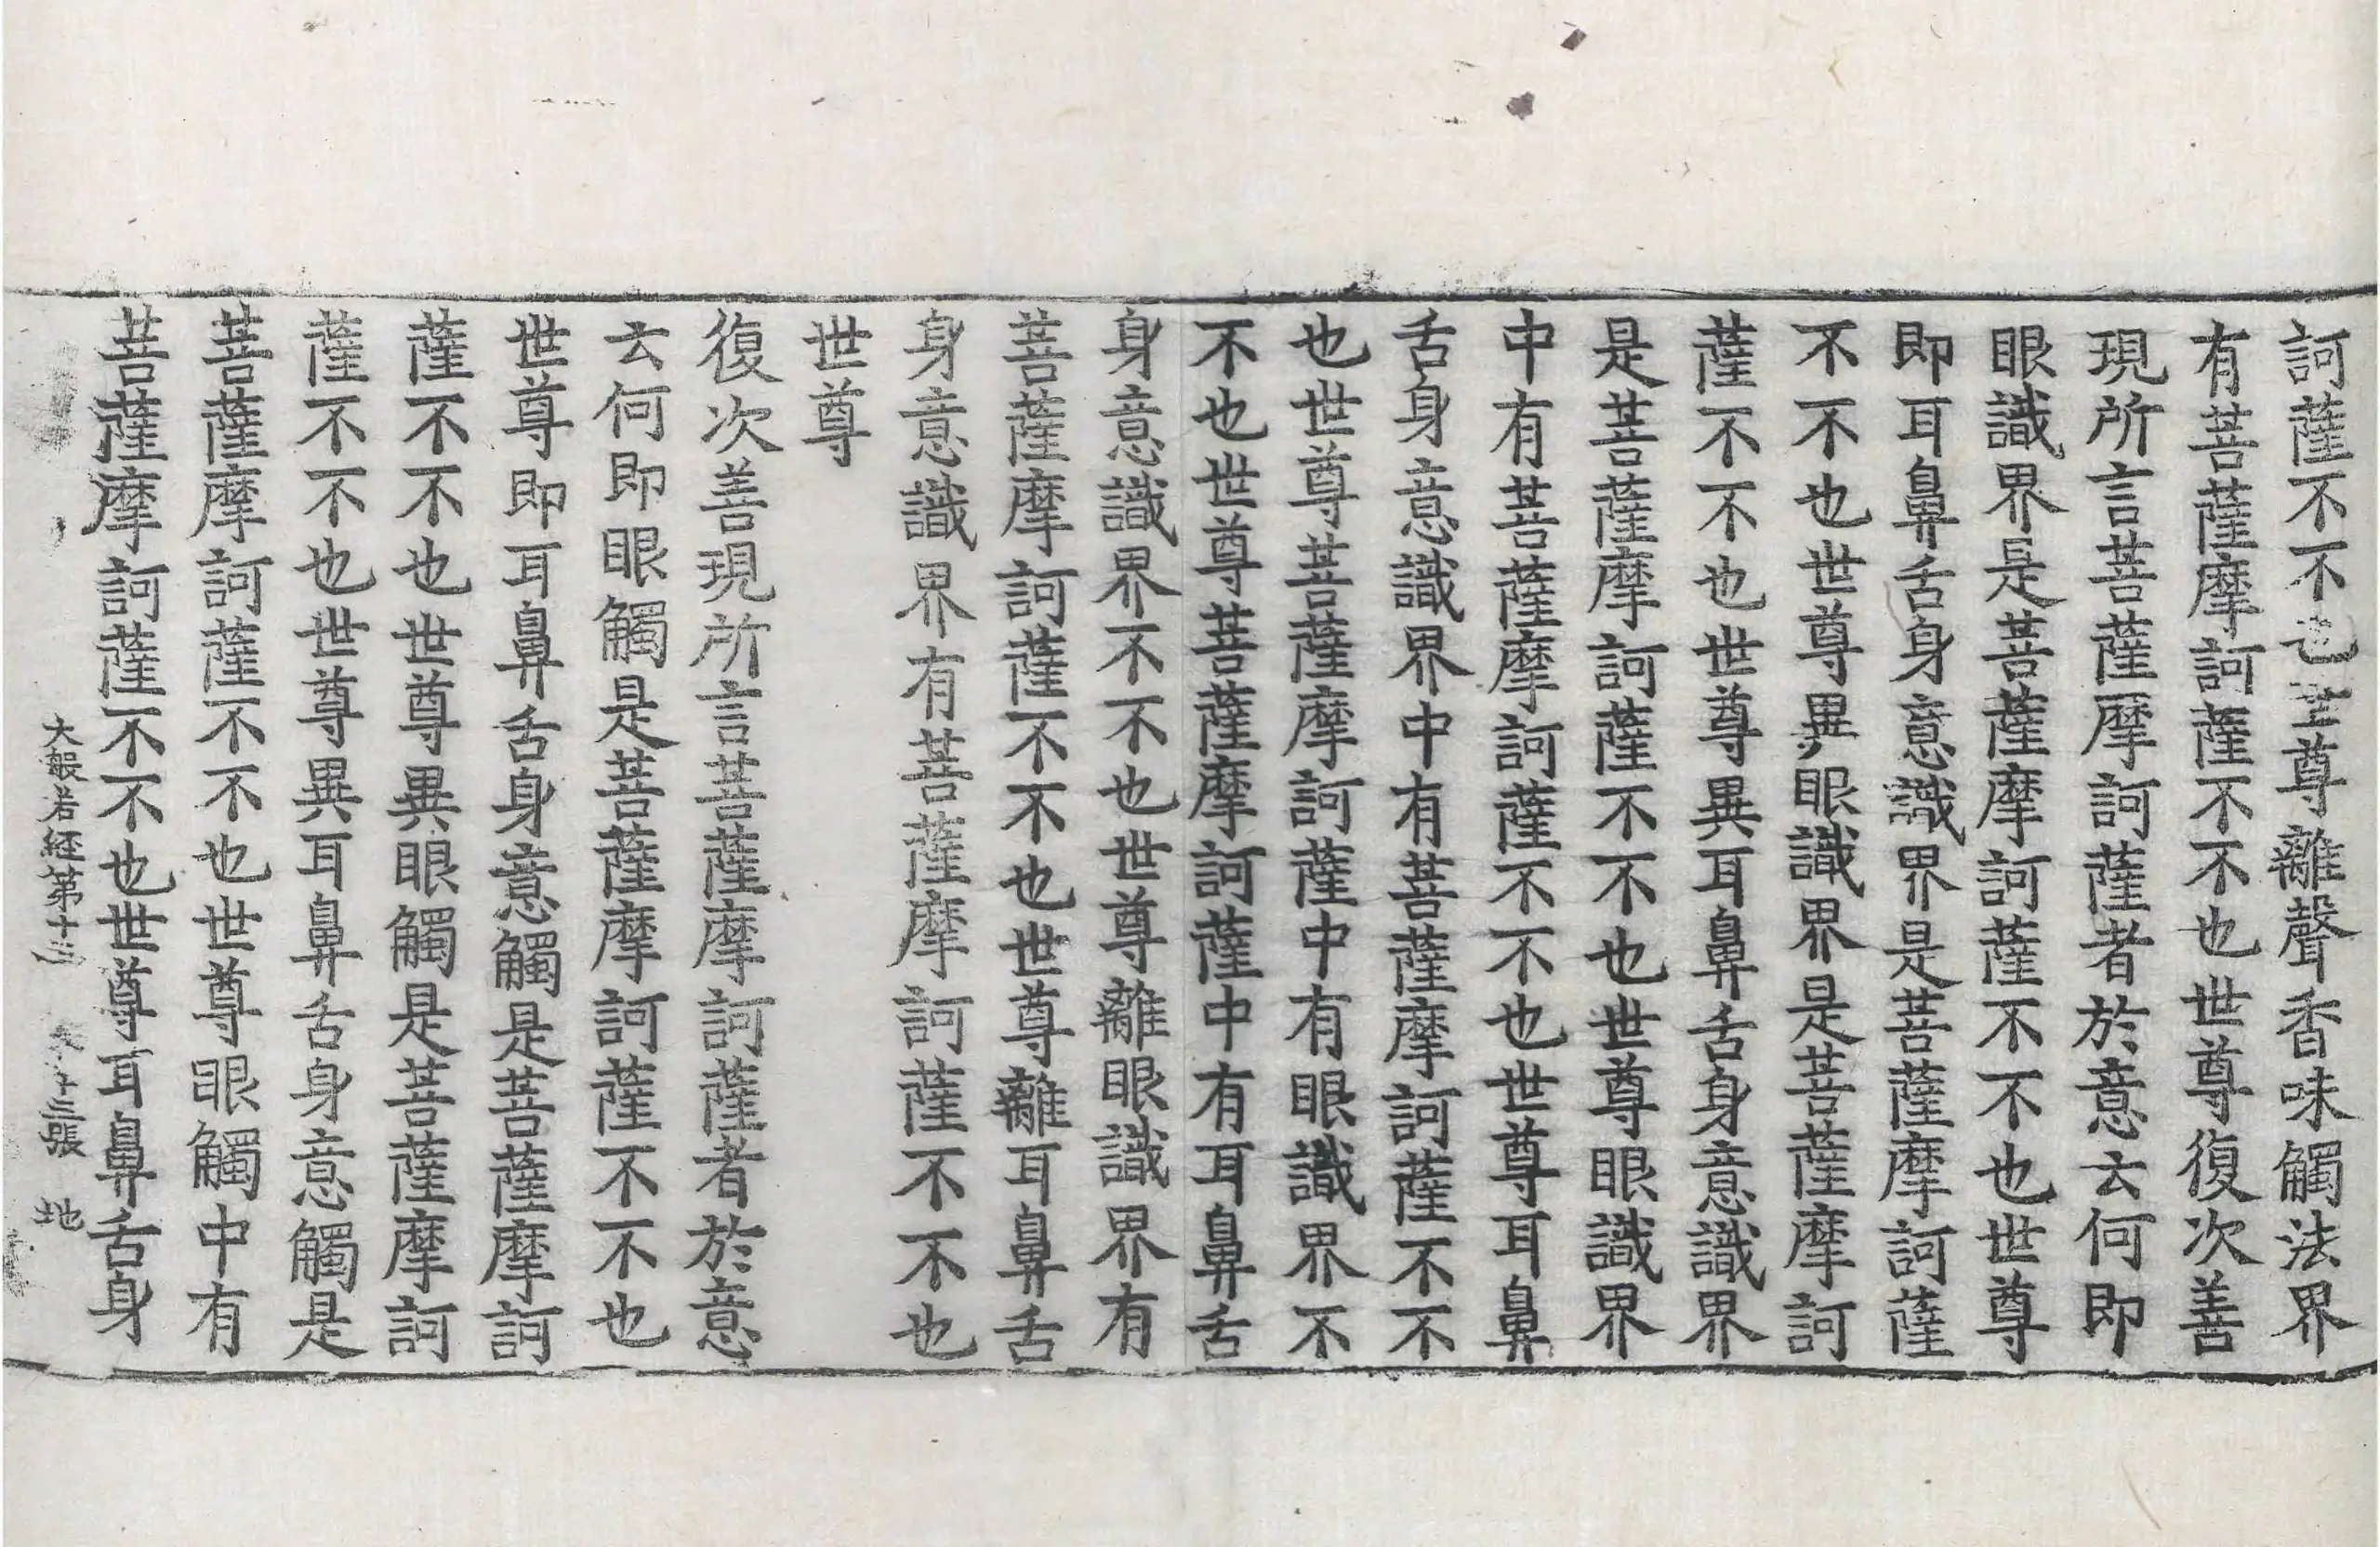 訶薩不不也世尊離聲香味觸法界
有菩薩摩訶薩不不也世尊復次善
現所言菩薩摩訶薩者於意云何即
眼識界是菩薩摩訶薩不不也世尊
即耳鼻舌身意識界是菩薩摩訶薩
不不也世尊異眼識界是菩薩摩訶
薩不不也世尊異耳鼻舌身意識界
是菩薩摩訶薩不不也世尊眼識界
中有菩薩摩訶薩不不也世尊耳鼻
舌身意識界中有菩薩摩訶薩不不
也世尊菩薩摩訶薩中有眼識界不
不也世尊菩薩摩訶薩中有耳鼻舌
身意識界不不也世尊離眼識界有
菩薩摩訶薩不不也世尊離耳鼻舌
身意識界有菩薩摩訶薩不不也
世尊
復次善現所言菩薩摩訶薩者於意
云何即眼觸是菩薩摩訶薩不不也
世尊即耳鼻舌身意觸是菩薩摩訶
薩不不也世尊異眼觸是菩薩摩訶
薩不不也世尊異耳鼻舌身意觸是
菩薩摩訶薩不不也世尊眼觸中有
菩薩摩訶薩不不也世尊耳鼻舌身
大般若経第十三 十三張 地